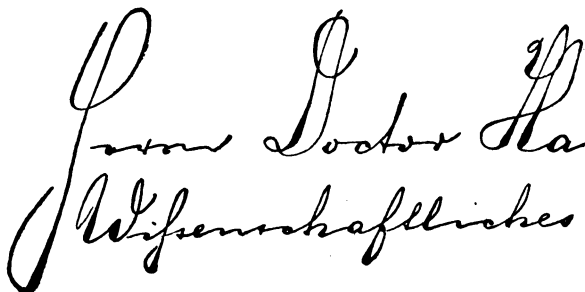 Herrn Doctor Ha
Wißenschaftliches